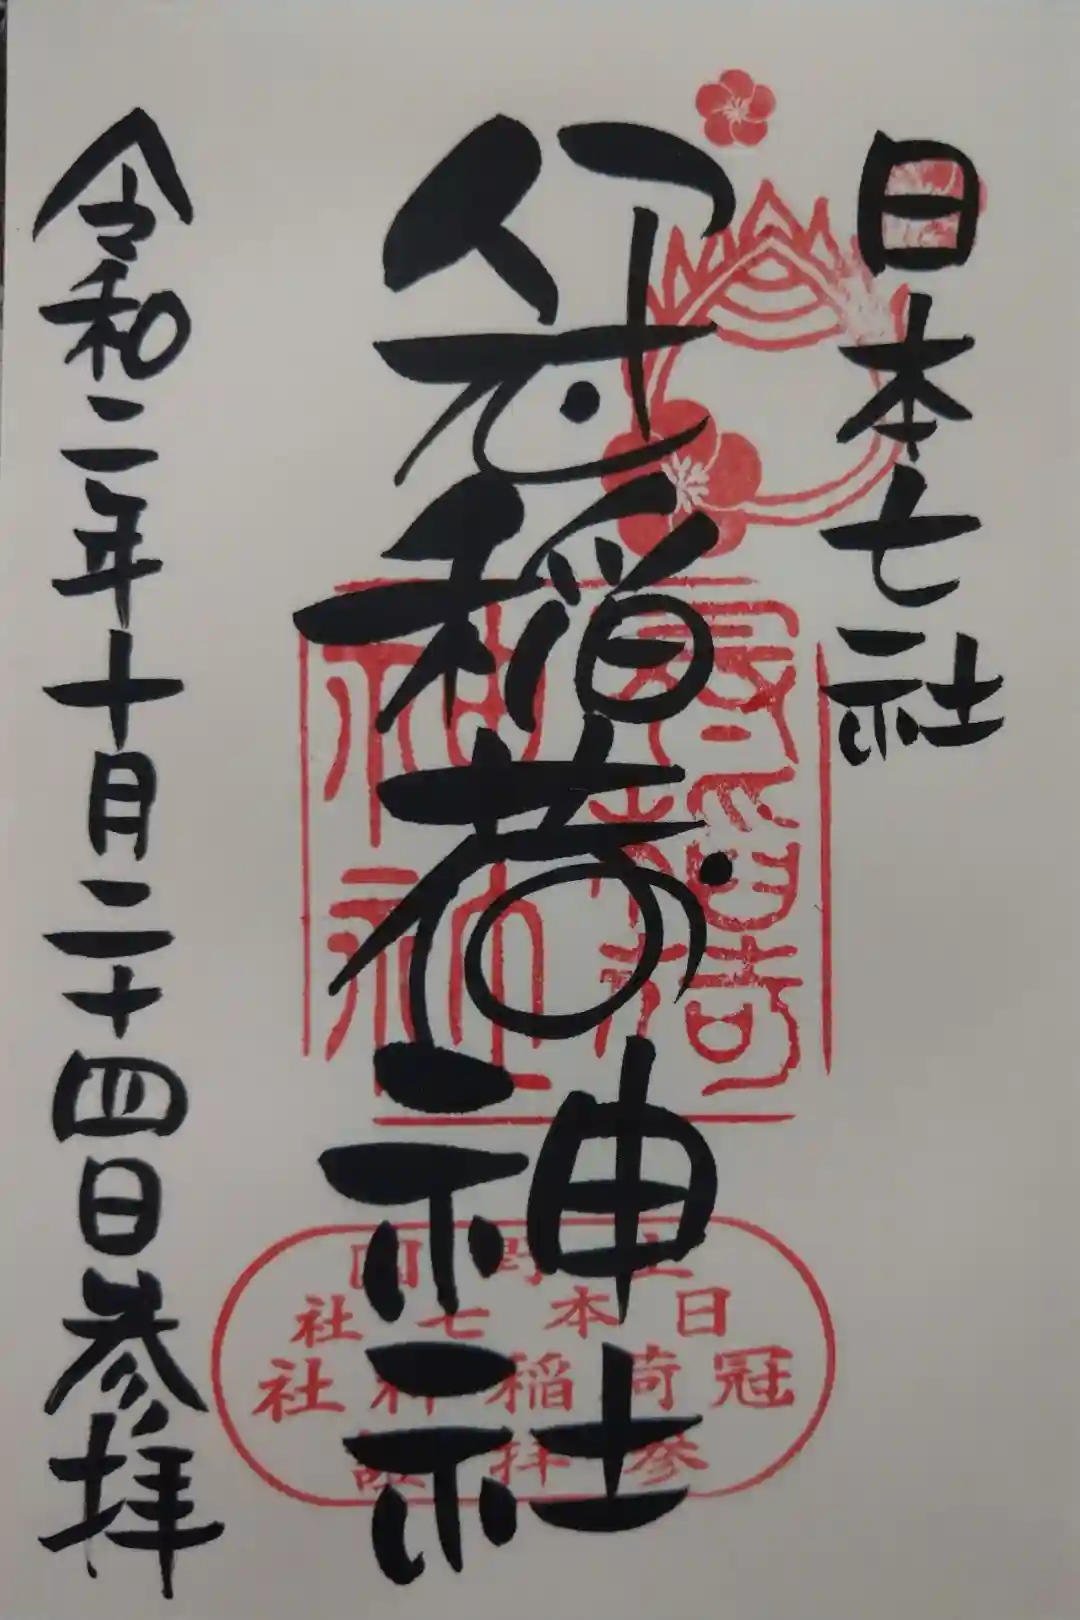 日本七社
冠稲荷神社
令和二年十月二十四日参拝
上野國
日本七社
冠稲荷神社
参拝